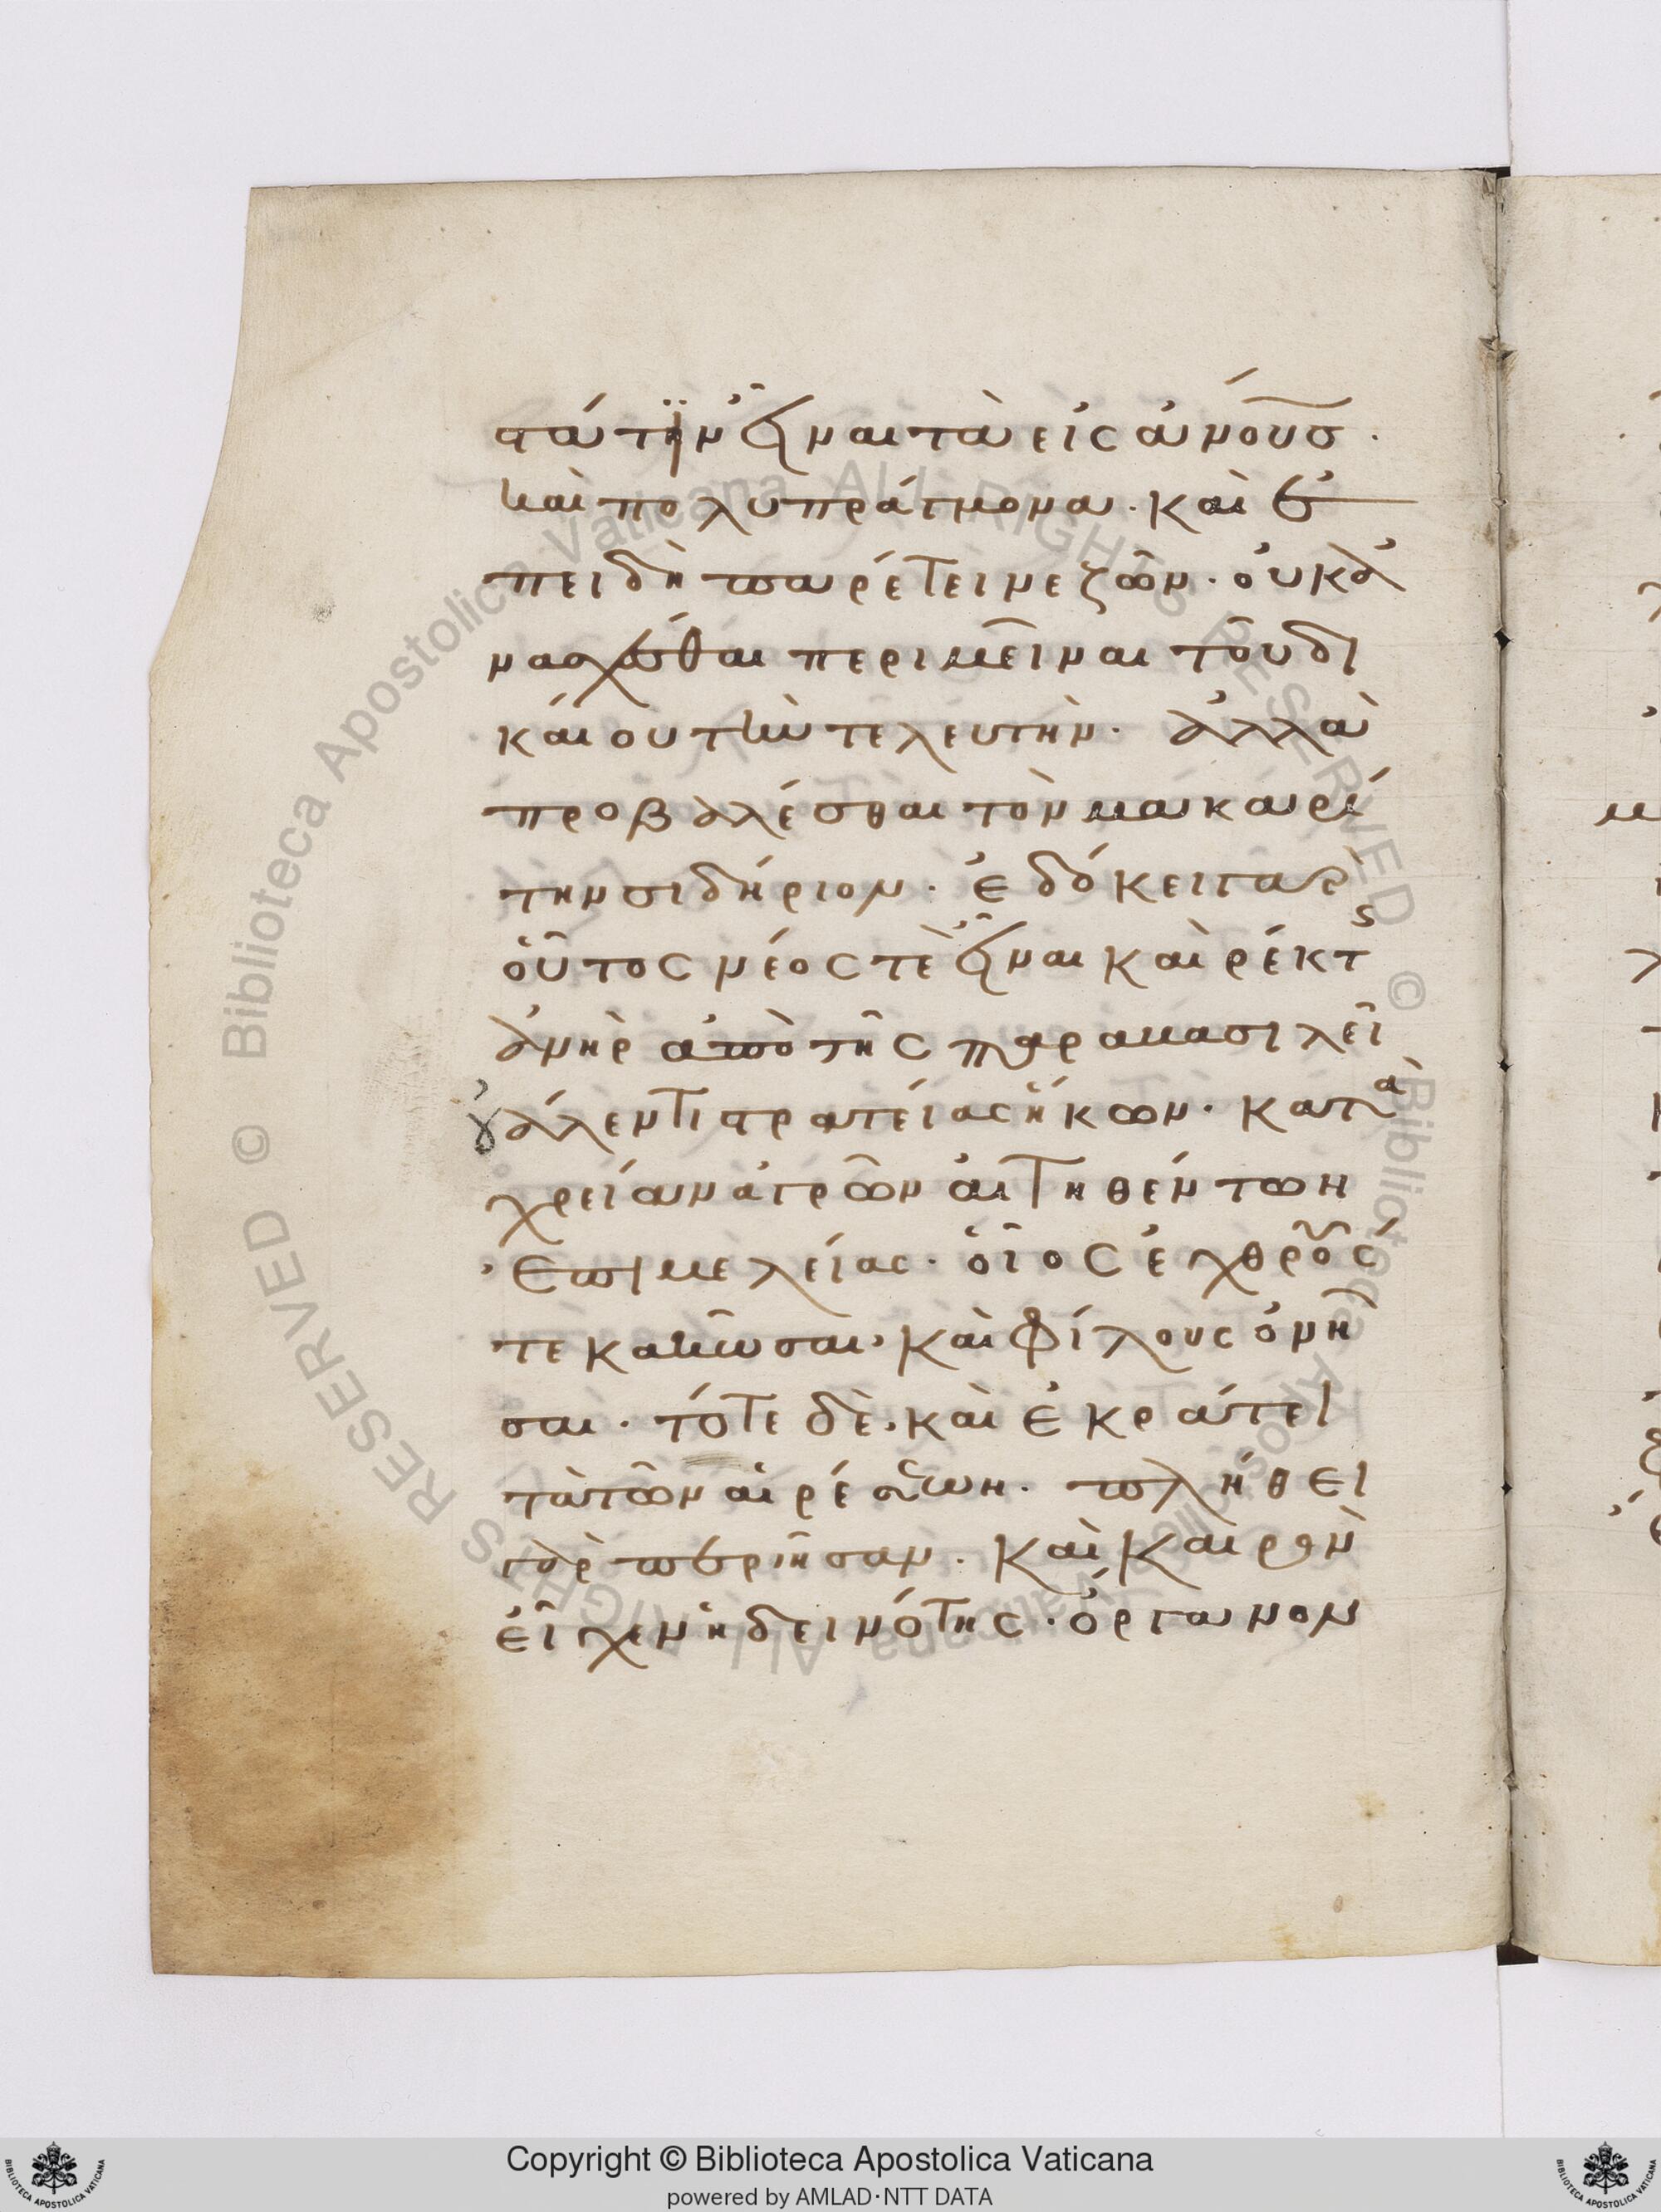 στάτην εἶναι τὰ εἰς ἄνους·
καὶ πολυπράγμονα· καὶ ἐ
πειδὴ παρέτεινε ζῶν· οὐκ ἀ
νασχέσθαι περιμεῖναι τοῦ δι
καίου τὴν τελευτήν· ἀλλὰ
προβαλέσθαι τὸν μακαρί
την σιδήριον· ἐδόκει γὰρ
οὗτος νέος τὲ εἶναι καὶ ῥέκτης
ἀνὴρ ἀπὸ τῆς παρα βασιλεῖ
οὐάλεντι στρατείας ἥκων· κατὰ
χρείαν ἀγρῶν αἰτηθέντων
ἐπιμελείας· οἷος ἐχθρούς
τε κακῶσαι, καὶ φίλους ὀνῆ
σαι· τότε δὲ, καὶ ἐκράτει
τὰ τῶν αἱρέσεων· πλήθει
γὰρ περιῆσαν· καὶ καιρὸν
εἶχεν ἡ δεινότης· ὄργανον
Copyright © Biblioteca Apostolica Vaticana
powered by AMLAD·NTT DATA